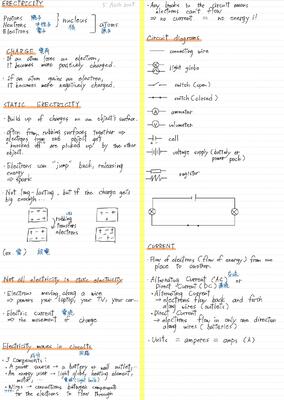 ELECTRICITY
5th March 2009
Protons 陽子
Neutrons 中性子
Electrons 電子
nucleus 核
atoms 原子
CHARGE 電荷
· If an atom loses an electron,
it becomes more positively charged.
· If an atom gains an electron,
it becomes more negatively charged.
STATIC ELECTRICITY
· Build up of charges on an object's surface.
· Often from rubbing surfaces together →
electrons from one object get
"knocked off" and picked up by the other
object.
· Electrons can "jump" back, releasing
energy
→ spark
· Not long-lasting, but if the charge gets
big enough...
rubbing
transfers
electrons
(ex. 雷)
Not all electricity is static electricity
· Electrons moving along a wire
→ powers your laptop, your TV, your car...
· Electric current 電流
→ the movement of charge
Electricity moves in circuits
回路
· 3 Components:
· A power source → a battery or wall outlet
· An energy user → light globe, heating element,
motor,
· Wires → connections between components
for the electrons to flow through
· Any breaks in the circuit means
electrons can't flow
⇒ no current = no energy!!
Circuit diagrams
connecting wire
light globe
switch (open)
switch (closed)
ammeter
voltmeter
cell
voltage supply (battery or
power pack)
resistor
CURRENT
· Flow of electrons (flow of energy) from one
place to another.
· Alternating Current (AC) 交流 or
Direct Current (DC) 直流
· Alternating Current
→ electrons flow back and forth
along wires (outlets)
· Direct Current
→ electrons flow in only one direction
along wires (batteries)
· Units = amperes = amps (A)